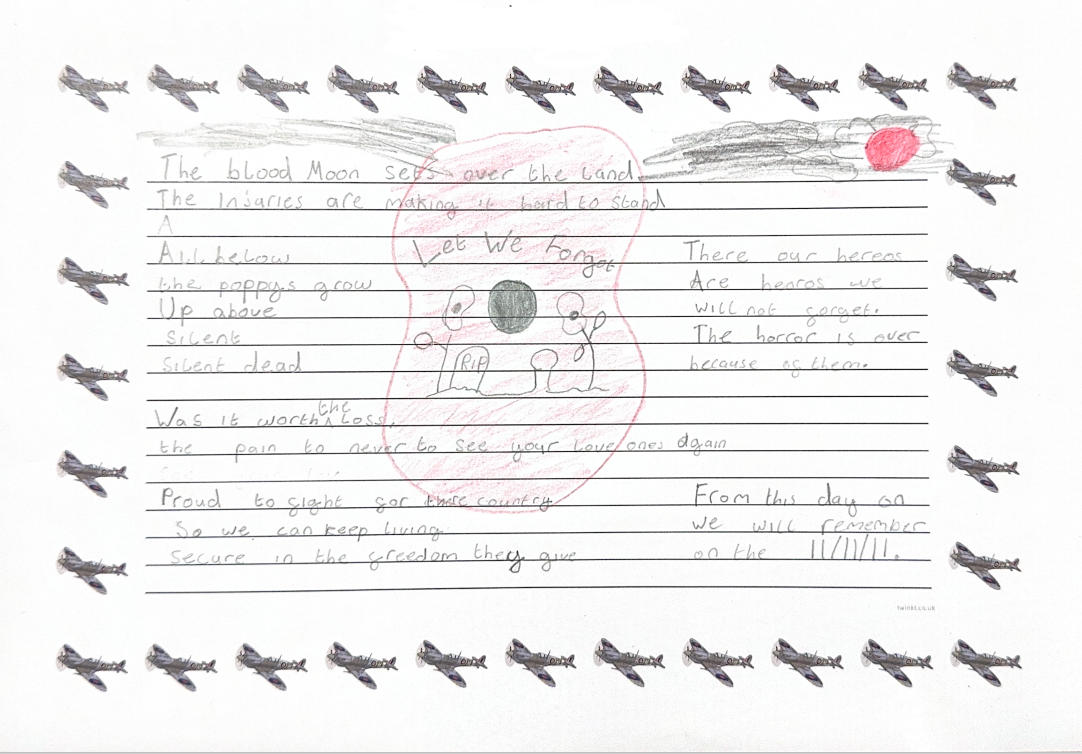 The blood Moon sets over the land.
The Injaries are making it hard to stand
A
All below
the poppys grow
Up above
Silent
Silent dead
Was it worth the loss.
the pain to never to see your love ones again
Proud to fight for there country
So we can keep living
Secure in the freedom they give
Let We Forget
RIP
There our hereos
Are henros we
will not forget.
The horror is over
because of them.
From this day on
we will remember
on the 11/11/11.
twinkl.co.uk